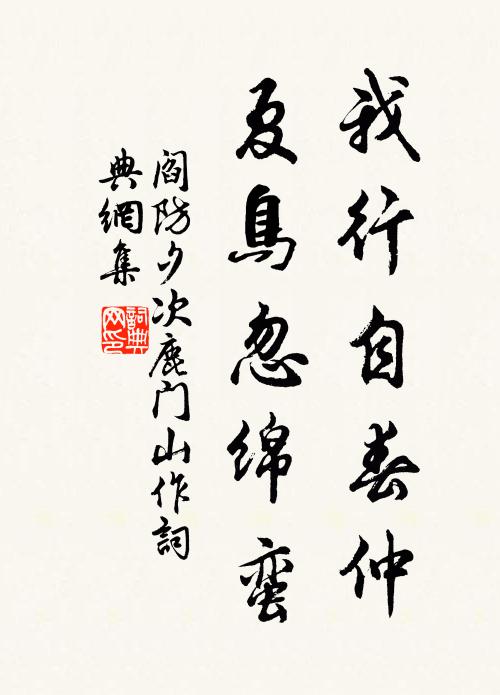 我行自春仲
夏鳥忽綿蠻
閻防夕次鹿门山作詞
典網集
詞典
网印